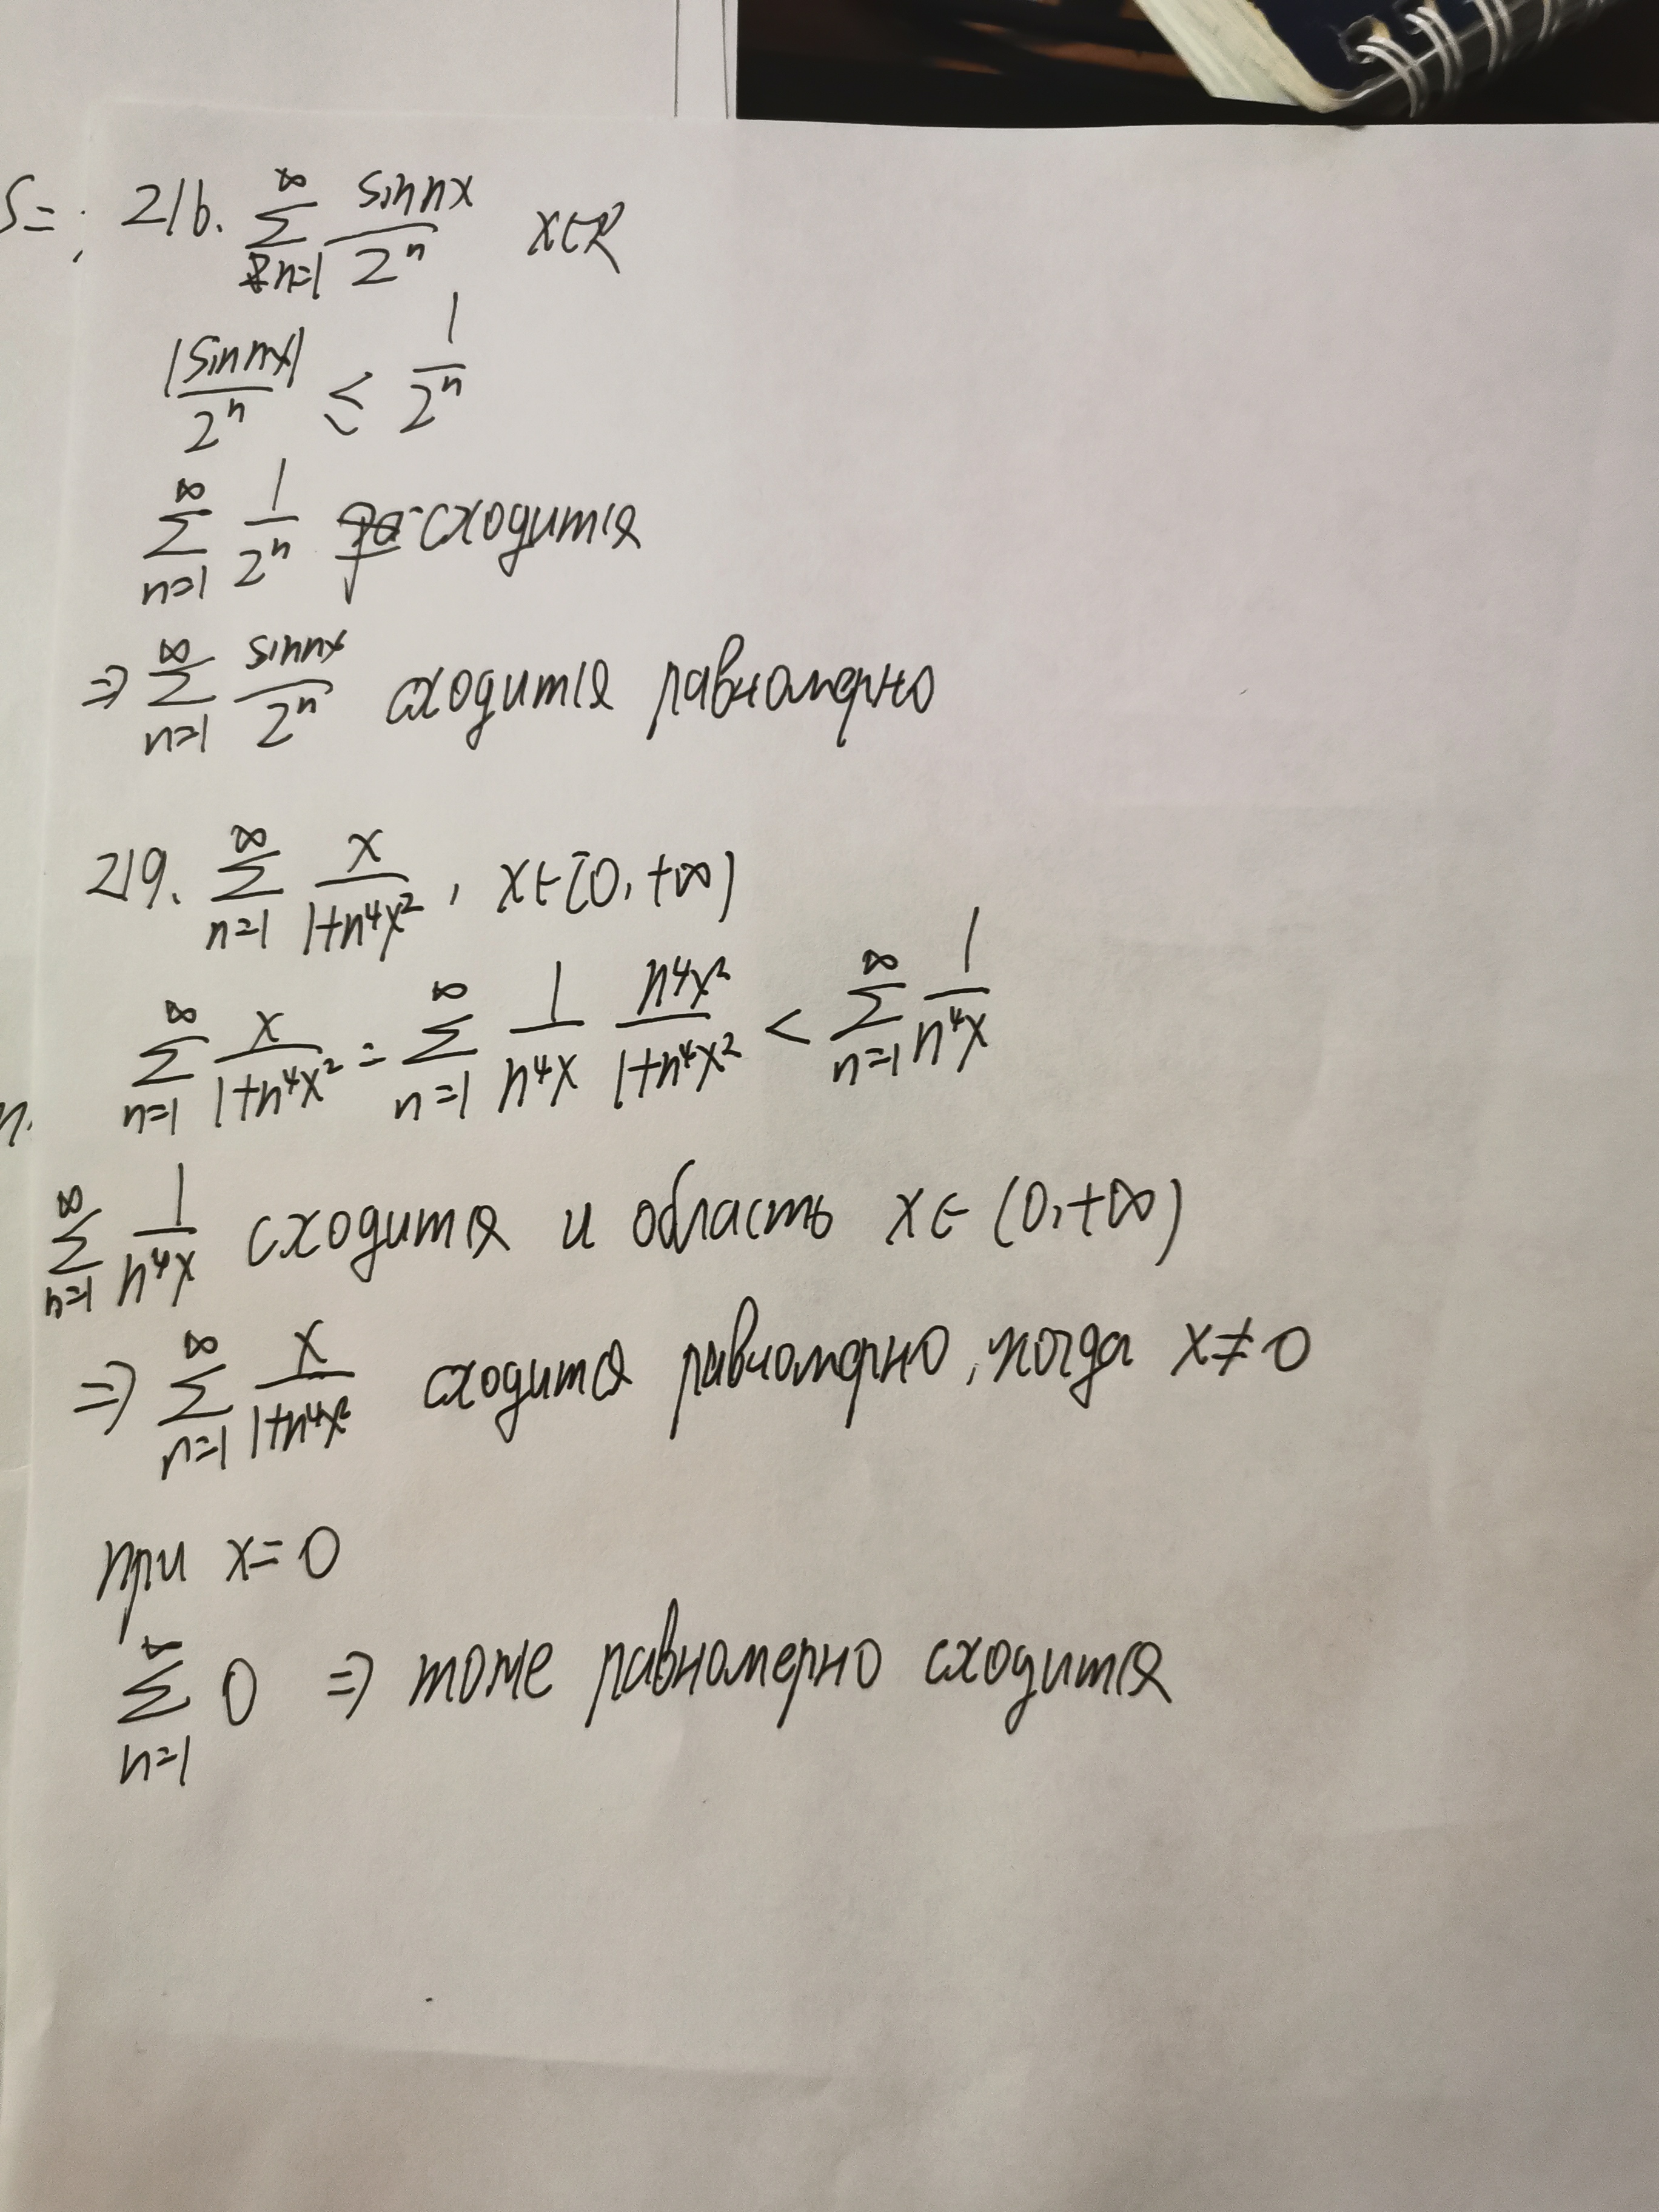 S= ; 216. \sum_{n=1}^{\infty} \frac{\sin nx}{2^n} x∈R
\frac{|\sin nx|}{2^n} ≤ \frac{1}{2^n}
\sum_{n=1}^{\infty} \frac{1}{2^n} сходится
⇒ \sum_{n=1}^{\infty} \frac{\sin nx}{2^n} сходится равномерно
219. \sum_{n=1}^{\infty} \frac{x}{1+n^4x^2}, x∈[0,+∞)
\sum_{n=1}^{\infty} \frac{x}{1+n^4x^2} = \sum_{n=1}^{\infty} \frac{1}{n^4x} \frac{n^4x^2}{1+n^4x^2} < \sum_{n=1}^{\infty} \frac{1}{n^4x}
\sum_{n=1}^{\infty} \frac{1}{n^4x} сходится и область x∈(0,+∞)
⇒ \sum_{n=1}^{\infty} \frac{x}{1+n^4x^2} сходится равномерно, когда x≠0
при x=0
\sum_{n=1}^{∞} 0 ⇒ тоже равномерно сходится